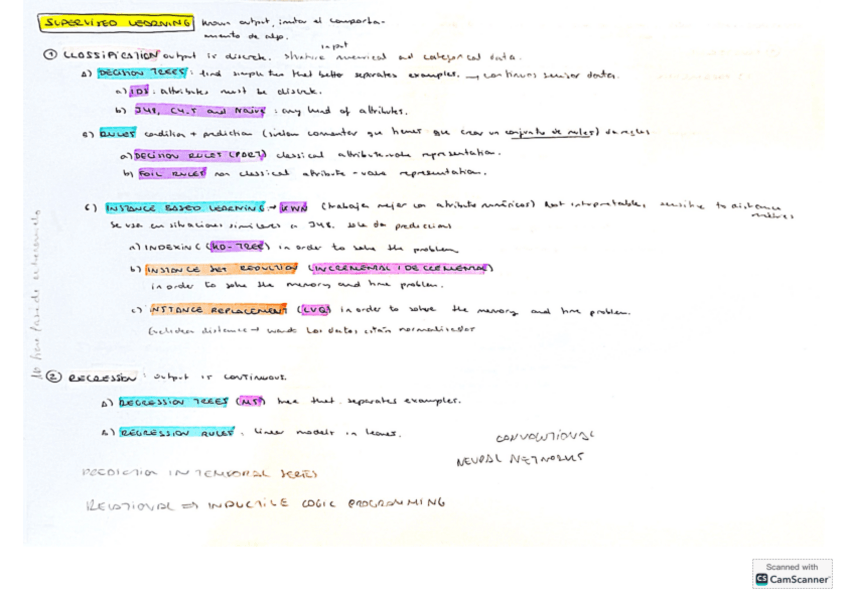 SUPERVISED LEARNING known output, imitar el comporta-
miento de algo.
input
① CLASSIFICATION output is discrete. numerical and categorical data.
A) DECISION TREES: find simple tree that better separates examples. → continuos sensor data.
a) ID3: attributes must be discrete.
b) J48, C4.5 and Naive: any kind of attributes.
B) RULES condition + prediction (sirven comentar que hemos que crear un conjunto de rules) de reglas
a) DECISION RULES (PART) classical attribute-value representation.
b) FOIL RULES non classical attribute-value representation.
C) INSTANCE BASED LEARNING → KNN (trabaja mejor con atributos numéricos) Not interpretable, sensitive to distance
metrics
Se usa en situaciones similares a J48. solo da predicciones
a) INDEXING (KD-TREE) in order to solve the problem
b) INSTANCE SET REDUCTION (INCREMENTAL / DECREMENTAL)
in order to solve the memory and time problem.
c) INSTANCE REPLACEMENT (LVQ) in order to solve the memory and time problem.
Euclidean distance → cuando los datos están normalizados
No tiene fase de entrenamiento
② REGRESSION: output is CONTINUOUS.
A) REGRESSION TREES (M5) tree that separates examples.
B) REGRESSION RULES. linear models in leaves.
CONVOLUTIONAL
NEURAL NETWORKS
PREDICTION IN TEMPORAL SERIES
RELATIONAL ⇒ INDUCTIVE LOGIC PROGRAMMING
Scanned with
CS CamScanner